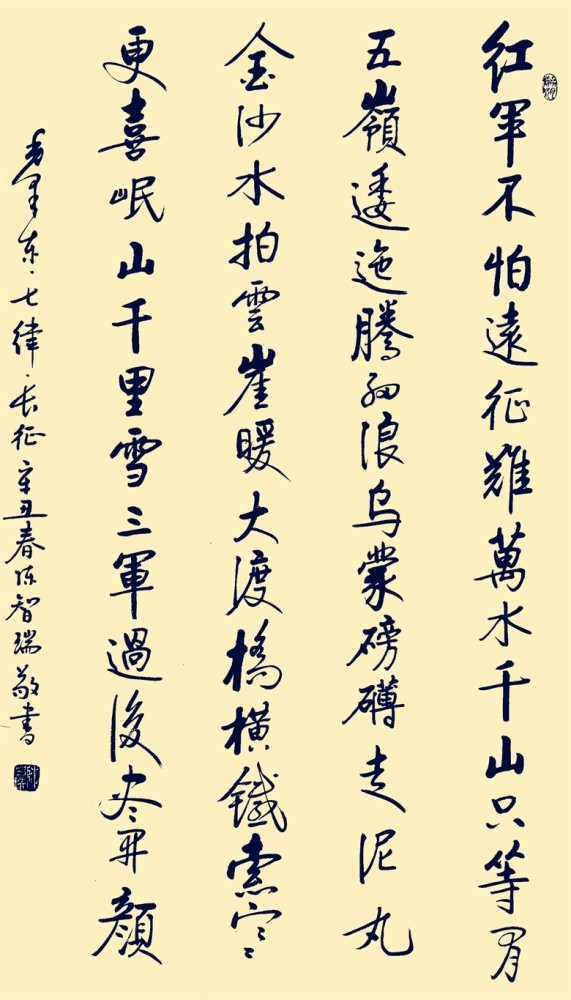 紅軍不怕遠征難萬水千山只等閑
五嶺逶迤騰細浪烏蒙磅礴走泥丸
金沙水拍雲崖暖大渡橋橫鐵索寒
更喜岷山千里雪三軍過後尽开顏
毛澤東·七律·長征辛丑春陈智瑞敬書